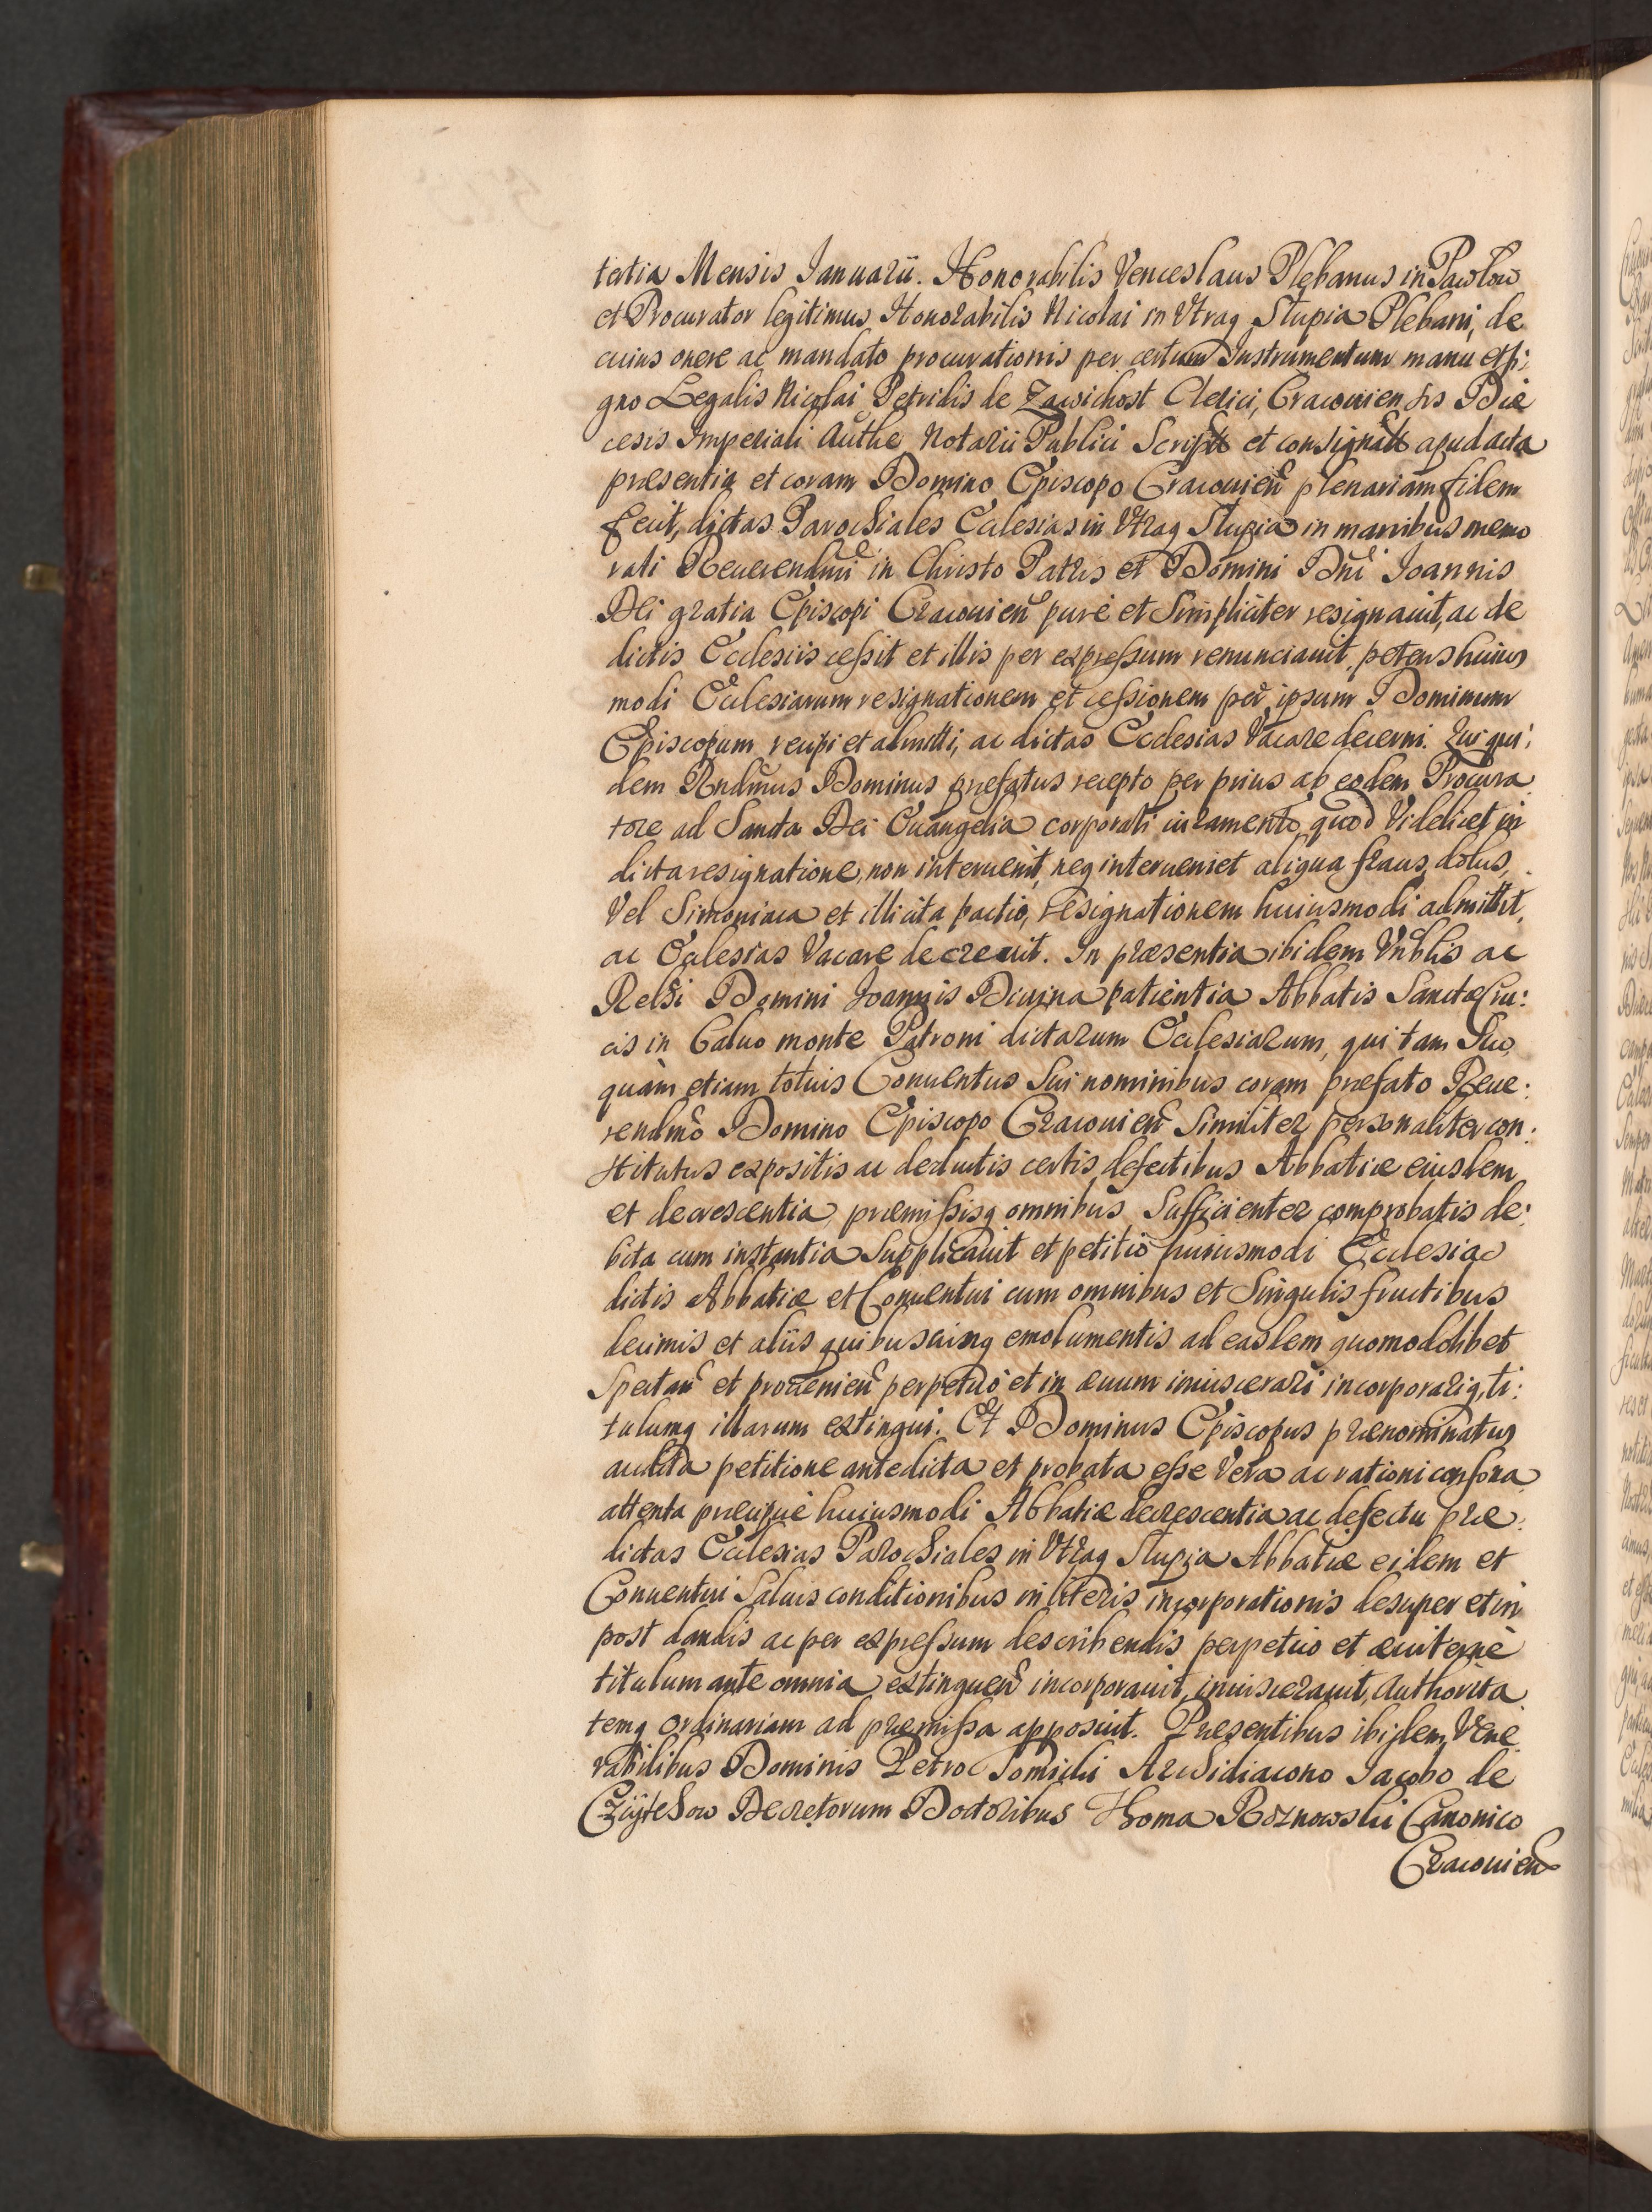 tertia Mensis Januarii. Honorabilis Venceslaus Plebanus in Pawlow
et Procurator legitimus Honorabilis Nicolai in Vtraq Slupia Plebani, de
cuius onere ac mandato procurationis per certum Instrumentum manu et si:
gno Legalis Nicolai Petridis de Zawichost Clerici, Cracouiensis Diæ
cesis Imperiali Authe Notarii Publici Script et consignat apud acta
præsentia et coram Domino Episcopo Cracouien plenariam fidem
fecit, dictas Parochiales Ecclesias in Vtraq Slupia in manibus memo
rati Reuerendmi in Christo Patris et Domini Dni Joannis
Dei gratia Episcopi Cracouien purè et Simpliciter resignauit, ac de
dictis Ecclesiis cessit et illis per expressum renunciauit, petens huius
modi Ecclesiarum resignationem et cessionem per ipsum Dominum
Episcopum recipi et admitti, ac dictas Ecclesias Vacare decerni. Qui qui:
dem Rndmus Dominus præfatus recepto per prius ab eodem Procura
tore ad Sancta Dei Euangelia corporali iuramento, quod Videlicet in
dicta resignatione, non interuenit, neq interueniet aliqua fraus, dolus,
Vel Simoniaca et illicita pactio, resignationem huiusmodi admittit,
ac Ecclesias Vacare decreuit. In præsentia ibidem Vnblis ac
Relsi Domini Joannis Diuina patientia Abbatis Sanctæ Cru:
cis in Caluo monte Patroni dictarum Ecclesiarum, qui tam Suo
quàm etiam totius Conuentus Sui nominibus coram præfato Reue:
rendmo Domino Episcopo Cracouien Similiter personaliter con:
stitutus expositis ac deductis certis defectibus Abbatiæ eiusdem
et decrescentia, præmissisq omnibus Sufficienter comprobatis de:
bita cum instantia Supplicauit et petitio huiusmodi Ecclesias
dictis Abbatiæ et Conuentui cum omnibus et Singulis fructibus
decimis et aliis quibuscunq emolumentis ad easdem quomodolibet
Spectan et prouenien perpetuò et in æuum inuiscerari incorporariq, ti:
tulumq illarum extingui. Et Dominus Episcopus prænominatus
audita petitione antedicta et probata esse Vera ac rationi consona
attenta præcipuè huiusmodi Abbatiæ decrescentia ac defectu præ:
dictas Ecclesias Parochiales in Vtraq Slupia Abbatiæ eidem et
Conuentui Saluis conditionibus in literis incorporationis desuper et in
post dandis ac per expressum describendis perpetuo et æuiternè
titulum ante omnia extinguen incorporauit, inuiscerauit, Authorita
temq ordinariam ad præmissa apposuit. Præsentibus ibidem Vene
rabilibus Dominis Petro Tomicki Archidiacono Jacobo de
Czÿschow Decretorum Doctoribus Thoma Roznowski Canonico
Cracouien